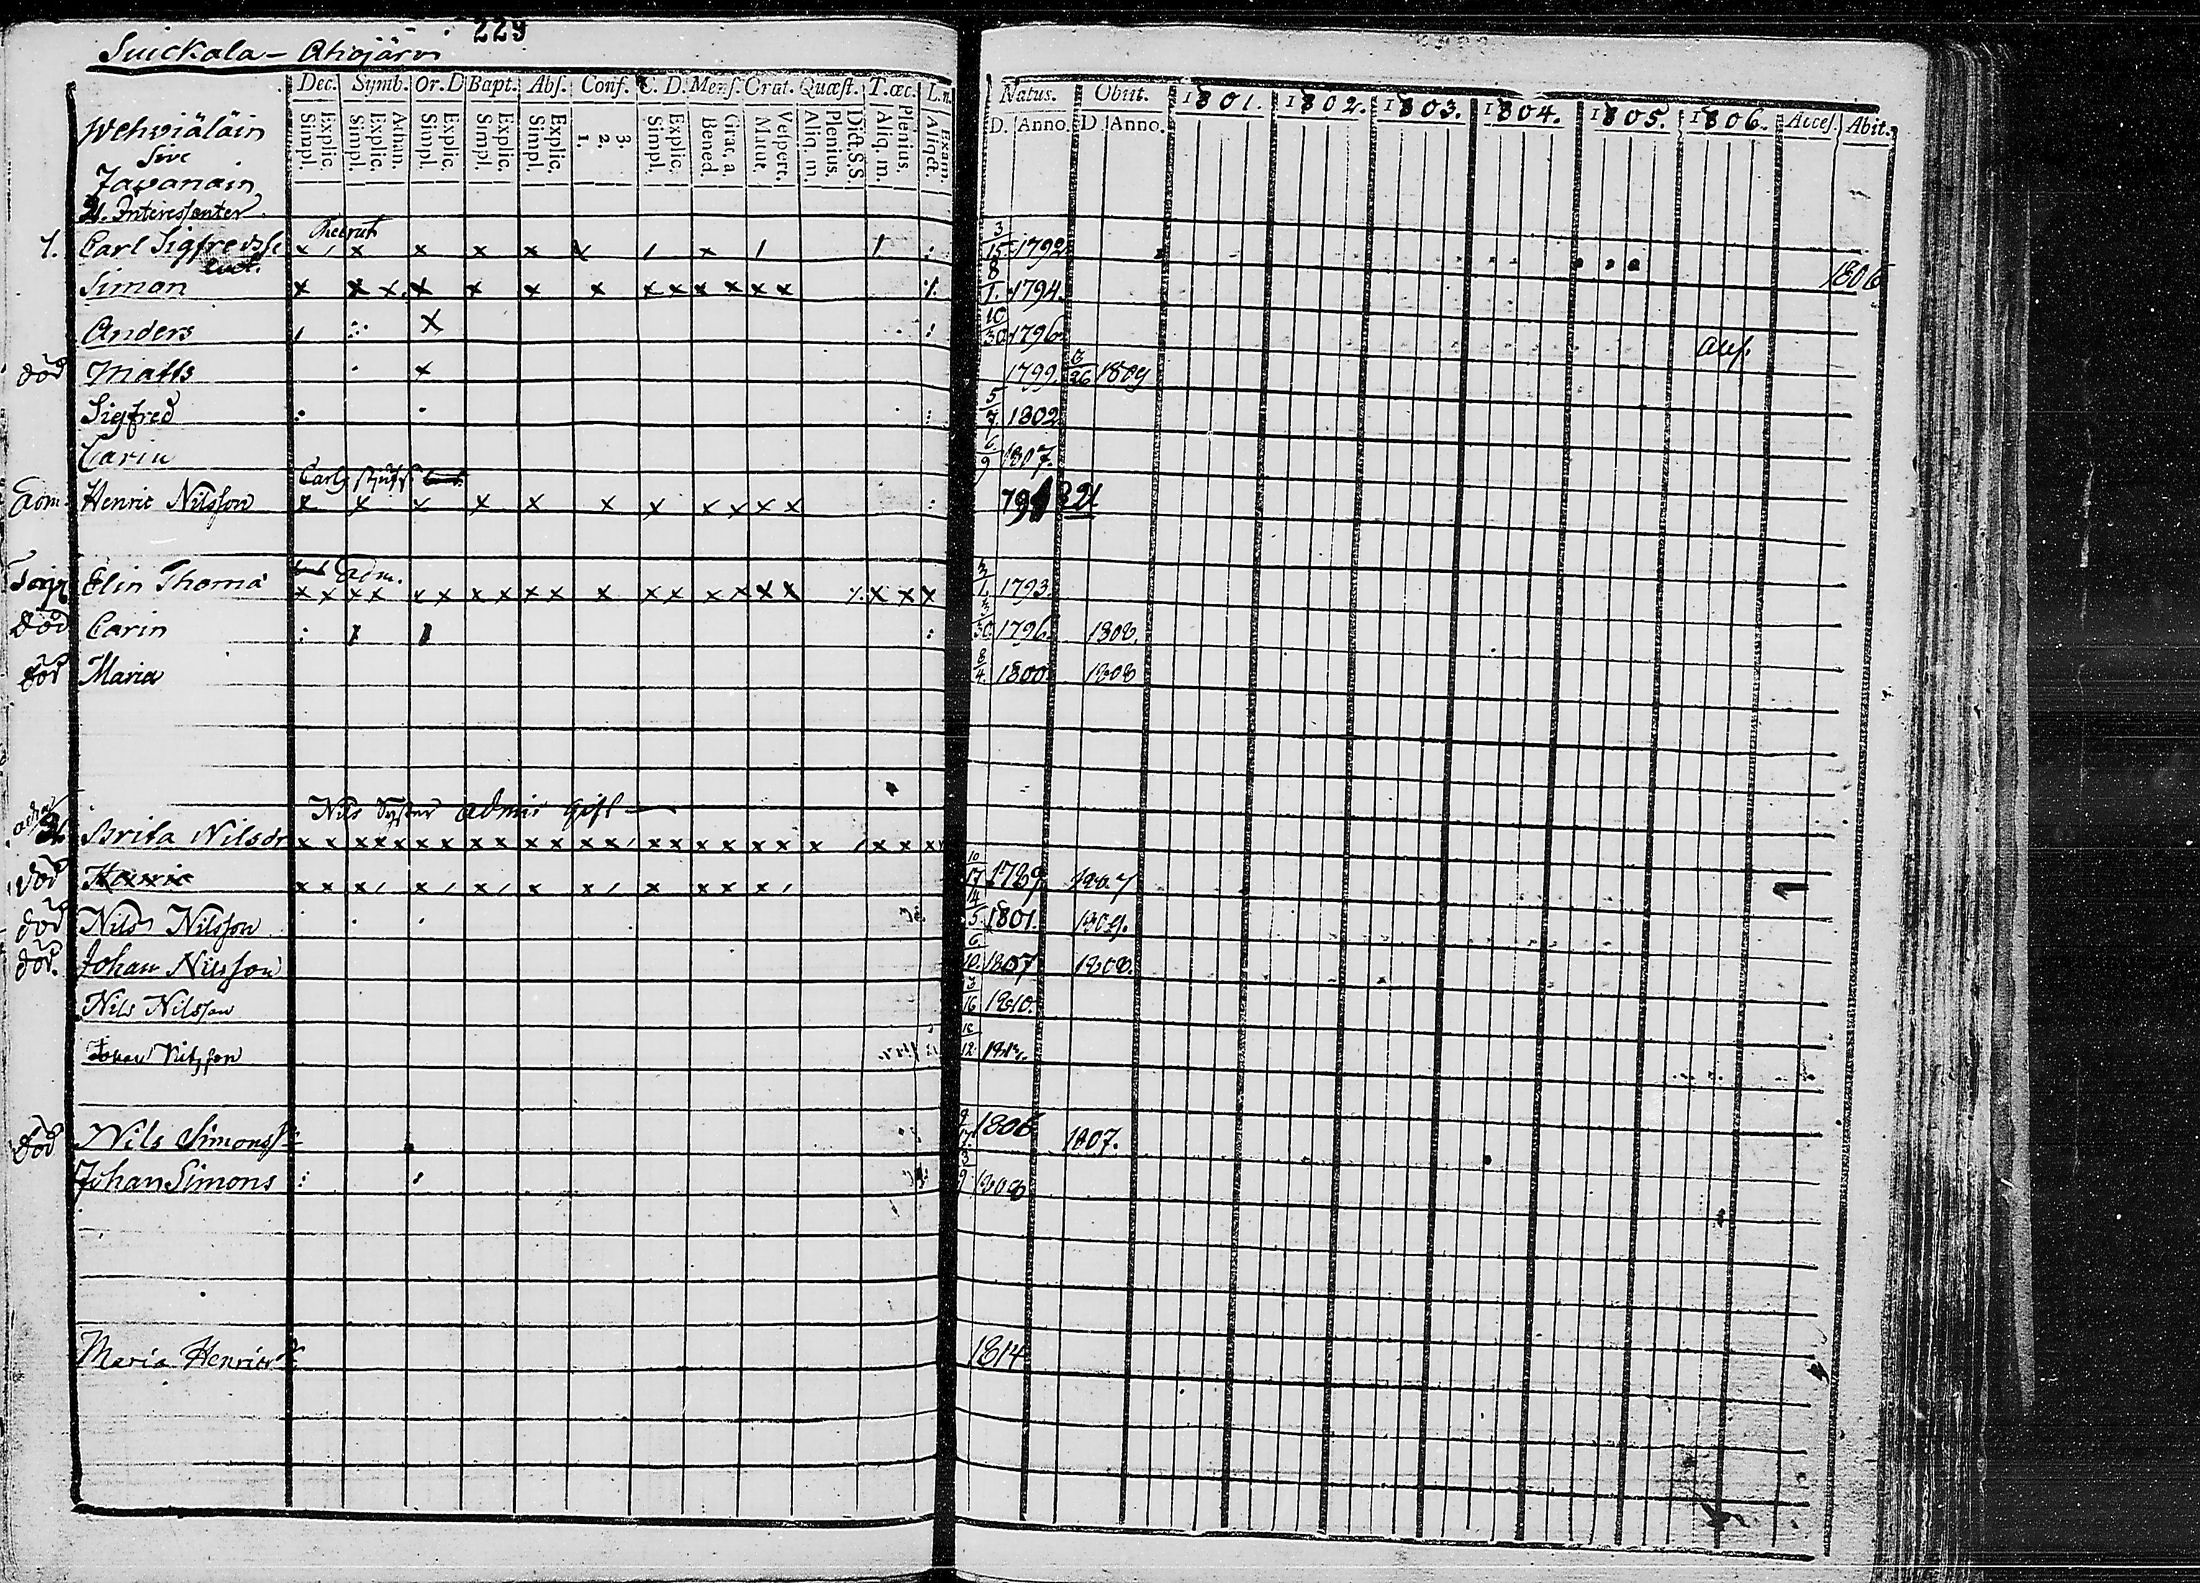 229
Suickala – Ahojärvi
Dec. Symb. Or. D Bapt. Abſ. Conf. C. D. Menſ. Grat. Quæſt. T. œc. L. n.
Explic. Simpl. Athan. Explic. Simpl. Explic. Simpl. Explic. Simpl. Explic. Simpl. 3. 2. 1. Explic. Simpl. Grac. a Bened. Veſpert. Matut. Dict. S. S. Plenius, Aliq. m. Plenius, Aliq. m. Exam.
Natus. Obiit. 1801. 1802. 1803. 1804. 1805. 1806. Acceſ. Abit.
D. Anno. D. Anno.
Wehviäläin
sive
Javanain
2. Interessenter
1. Carl Sigfredss 3/15 1792
Simon 8/1. 1794. 1806
Anders 10/30 1796
död Matts 1799. 26 1809
Sigfred 5/7. 1802
Carin 6/9 1807.
Adm. Henric Nilsson
Adm.
Elin Thoma 3/1. 1793.
död Carin 3/30. 1796 1808.
död Maria 8/4. 1800 1808
Nils Syster admis gift
2 Brita Nilsdr
död 10/17 1789 1807
död Nils Nilsson 5. 1801. 1809.
död. Johan Nilsson 6/10. 1807 1808.
Nils Nilsson 3/16 1810.
Johan Nilsson 12
död Nils Simonss 1806 1807.
Johan Simons 3/9 1808
Maria Henricsdr 1814